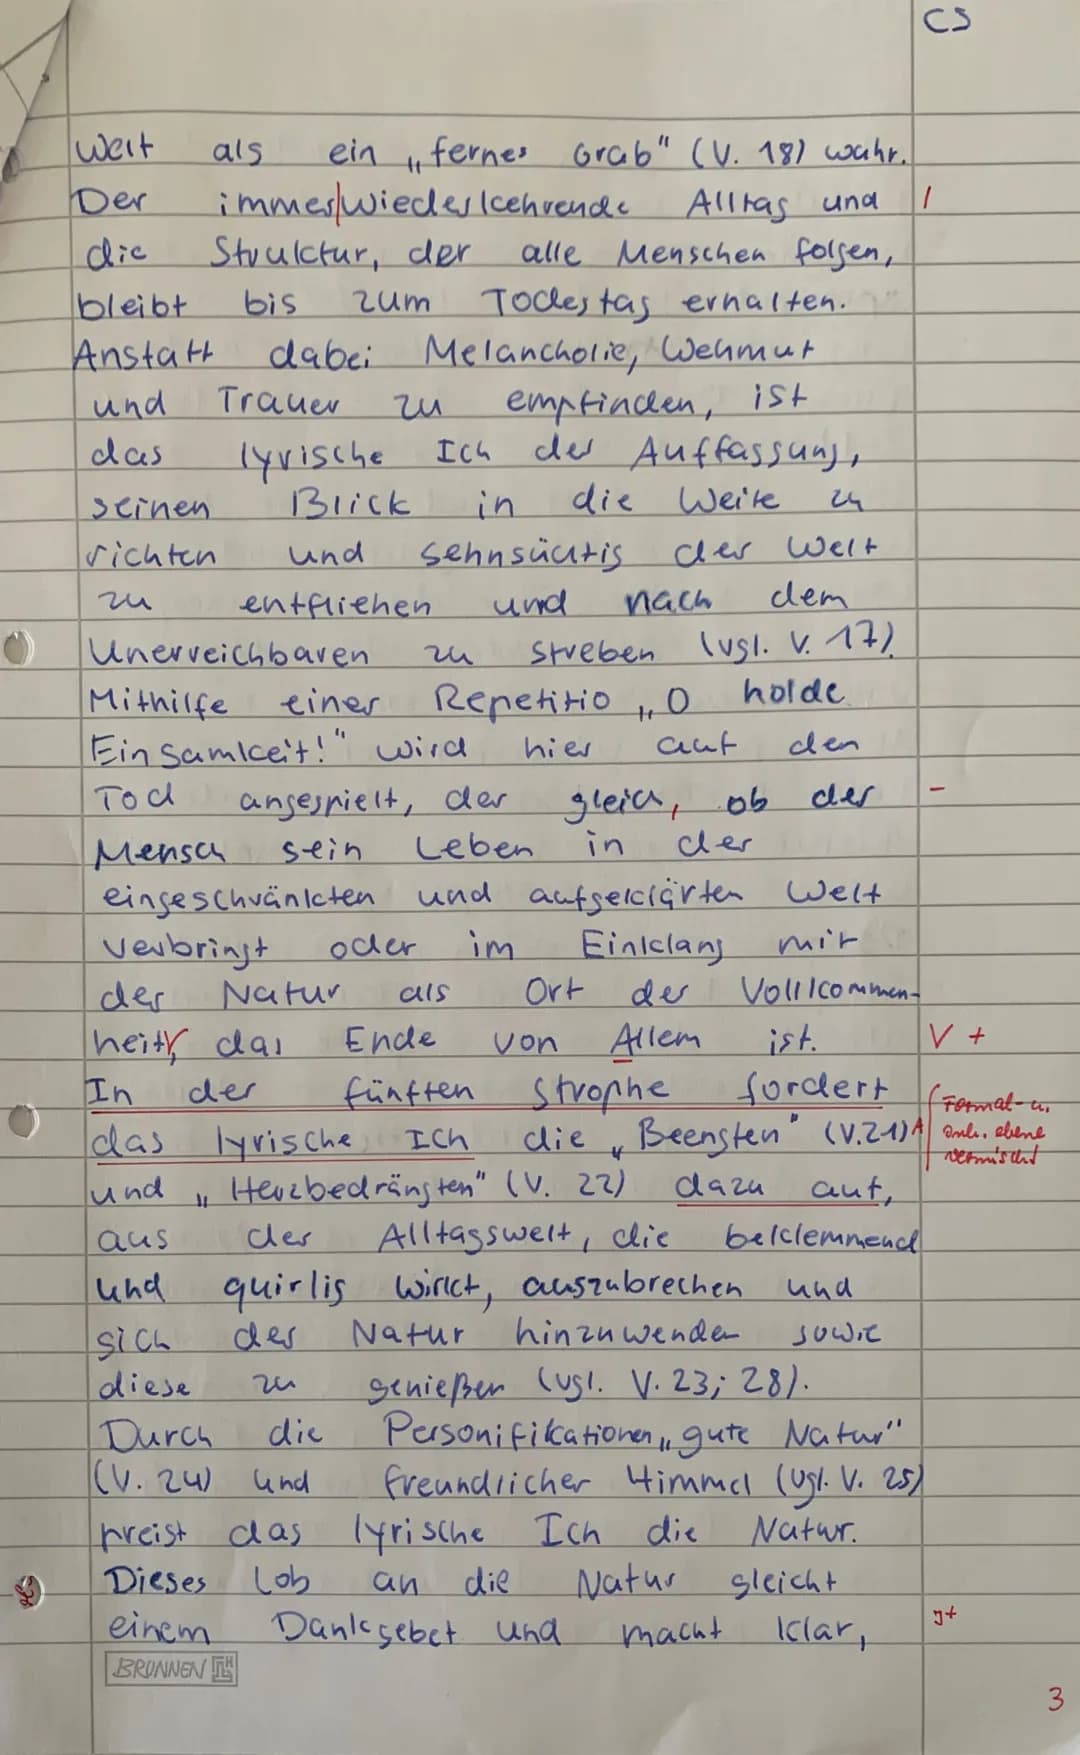 CS
Welt als ein „fernes Grab" (V. 18) wahr.
Der immer|wiederkehrende Alltag und |
die Struktur, der alle Menschen folgen,
bleibt bis zum Todestag erhalten.
Anstatt dabei Melancholie, Wehmut
und Trauer zu empfinden, ist
das lyrische Ich der Auffassung,
seinen Blick in die Weite zu
richten und sehnsüchtig der Welt
zu entfliehen und nach dem
Unerreichbaren zu streben (vgl. V. 17).
Mithilfe einer Repetitio „O holde
Einsamkeit!" wird hier auf den
Tod angespielt, der gleich, ob der -
Mensch sein Leben in der
eingeschränkten und aufgeklärten Welt
verbringt oder im Einklang mit
der Natur als Ort der Vollkommen-
heit√ das Ende von Allem ist. V +
In der fünften Strophe fordert
das lyrische Ich die „Beengten" (V.21) A
Formal- u.
inh. ebene
vermischt
und „Herzbedrängten" (V. 22) dazu auf,
aus der Alltagswelt, die beklemmend
und quirlig wirkt, auszubrechen und
sich der Natur hinzuwenden sowie
diese zu genießen (vgl. V. 23; 28).
Durch die Personifikationen „gute Natur"
(V. 24) und freundlicher Himmel (vgl. V. 25)
preist das lyrische Ich die Natur.
Dieses Lob an die Natur gleicht
einem Dankgebet und macht klar,
BRUNNEN
3